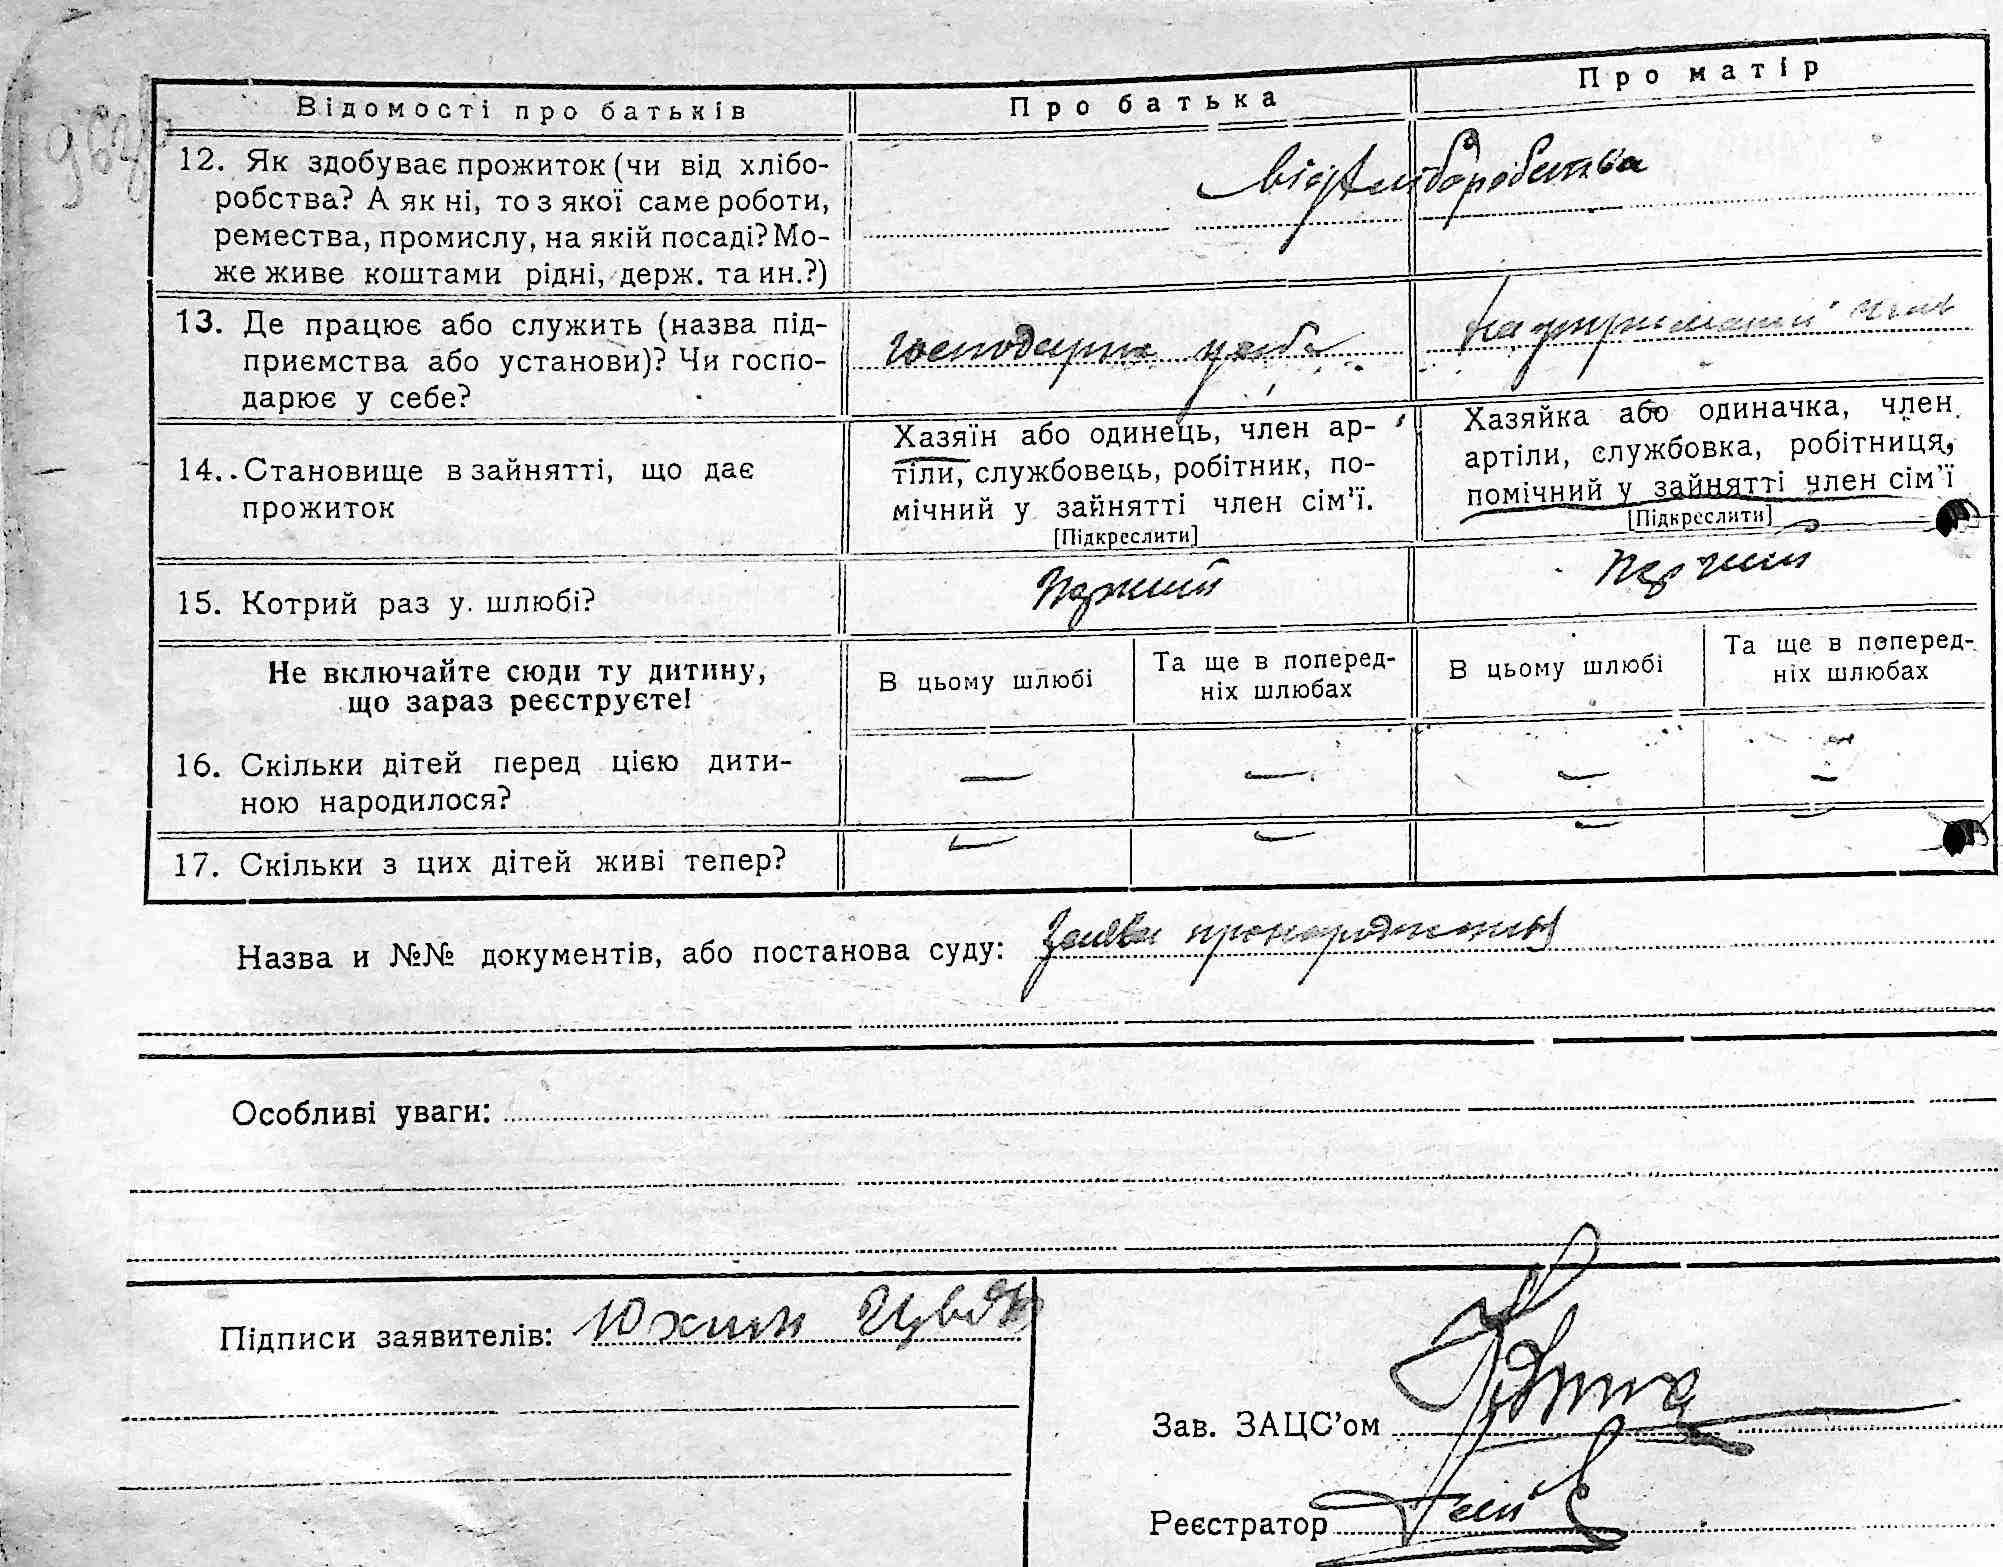 Відомості про батьків
Про батька
Про матір
12. Як здобуває прожиток (чи від хлібо-
робства? А як ні, то з якої саме роботи,
ремества, промислу, на якій посаді? Мо-
же живе коштами рідні, держ. та ин.?)
від хліборобства
13. Де працює або служить (назва під-
приємства або установи)? Чи госпо-
дарює у себе?
господарює у себе
на утриманні
14. Становище в зайнятті, що дає
прожиток
Хазяїн або одинець, член ар-
тіли, службовець, робітник, по-
мічний у зайнятті член сім'ї.
[Підкреслити]
Хазяйка або одиначка, член
артіли, службовка, робітниця,
помічний у зайнятті член сім'ї
[Підкреслити]
15. Котрий раз у шлюбі?
Перший
Перший
Не включайте сюди ту дитину,
що зараз реєструєте!
В цьому шлюбі
Та ще в поперед-
ніх шлюбах
В цьому шлюбі
Та ще в поперед-
ніх шлюбах
16. Скільки дітей перед цією дити-
ною народилося?
— — — —
17. Скільки з цих дітей живі тепер?
— — — —
Назва и №№ документів, або постанова суду: заява про народження
Особливі уваги:
Підписи заявителів: Юхим
Зав. ЗАЦС'ом
Реєстратор